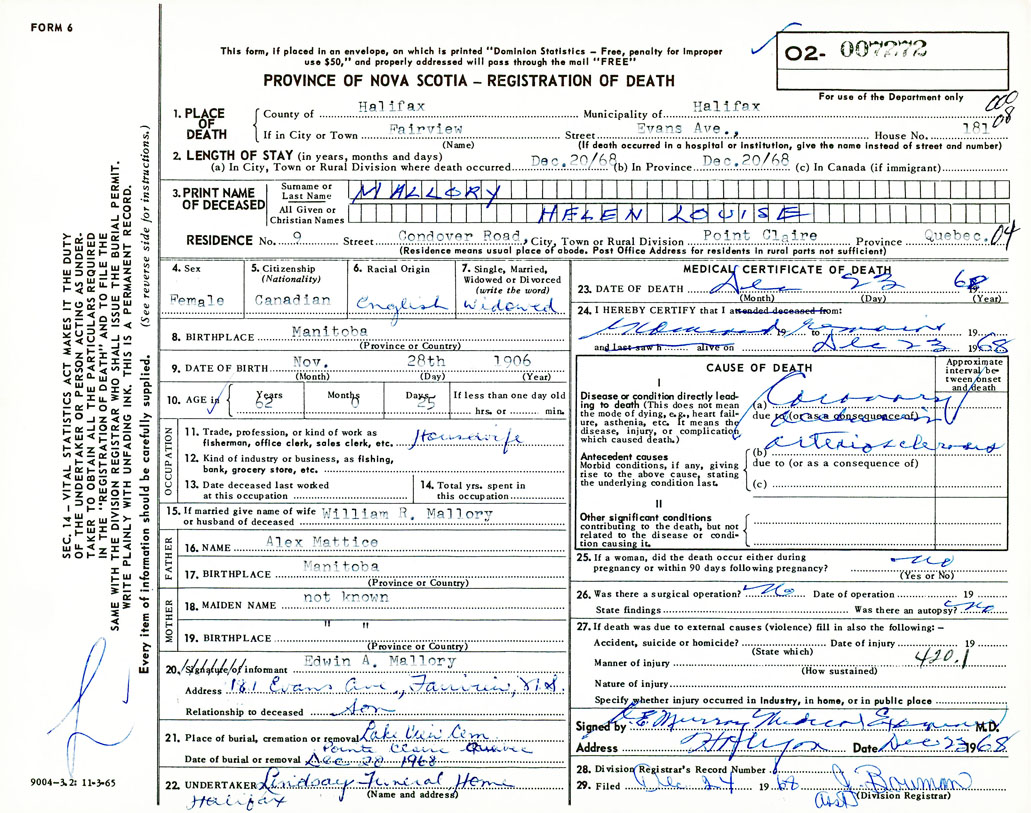 FORM 6
This form, if placed in an envelope, on which is printed "Dominion Statistics – Free, penalty for improper
use $50," and properly addressed will pass through the mail "FREE"
PROVINCE OF NOVA SCOTIA – REGISTRATION OF DEATH
O2- 007272
For use of the Department only
000
08
1. PLACE OF DEATH
County of Halifax Municipality of Halifax
If in City or Town Fairview Street Evans Ave., House No. 181
(Name) (If death occurred in a hospital or institution, give the name instead of street and number)
2. LENGTH OF STAY (in years, months and days)
(a) In City, Town or Rural Division where death occurred Dec.20/68 (b) In Province Dec.20/68 (c) In Canada (if immigrant)
3. PRINT NAME OF DECEASED
Surname or Last Name MALLORY
All Given or Christian Names HELEN LOUISE
RESIDENCE No. 9 Street Condover Road, City, Town or Rural Division Point Claire Province Quebec. 04
(Residence means usual place of abode. Post Office Address for residents in rural parts not sufficient)
4. Sex
Female
5. Citizenship
(Nationality)
Canadian
6. Racial Origin
English
7. Single, Married,
Widowed or Divorced
(write the word)
Widowed
8. BIRTHPLACE Manitoba
(Province or Country)
9. DATE OF BIRTH Nov. 28th 1906
(Month) (Day) (Year)
10. AGE in Years Months Days If less than one day old
62 0 25 hrs. or min.
OCCUPATION
11. Trade, profession, or kind of work as
fisherman, office clerk, sales clerk, etc. Housewife
12. Kind of industry or business, as fishing,
bank, grocery store, etc.
13. Date deceased last worked
at this occupation
14. Total yrs. spent in
this occupation
15. If married give name of wife
or husband of deceased William R. Mallory
FATHER
16. NAME Alex Mattice
17. BIRTHPLACE Manitoba
(Province or Country)
MOTHER
18. MAIDEN NAME not known
19. BIRTHPLACE " "
(Province or Country)
20. Signature of informant Edwin A. Mallory
Address 181 Evans Ave., Fairview, N.S.
Relationship to deceased Son
21. Place of burial, cremation or removal Lake View Cem
Pointe Claire
Date of burial or removal Dec 28 1968
22. UNDERTAKER Lindsay Funeral Home
Halifax (Name and address)
MEDICAL CERTIFICATE OF DEATH
23. DATE OF DEATH Dec 23 1968
(Month) (Day) (Year)
24. I HEREBY CERTIFY that I attended deceased from:
Examined 19 to Remains 19
and last saw h alive on Dec 23 1968
CAUSE OF DEATH
Approximate
interval be-
tween onset
and death
I
Disease or condition directly lead-
ing to death (This does not mean
the mode of dying, e.g., heart fail-
ure, asthenia, etc. It means the
disease, injury, or complication
which caused death.)
(a) Coronary
due to (or as a consequence of)
Antecedent causes
Morbid conditions, if any, giving
rise to the above cause, stating
the underlying condition last.
(b) arteriosclerosis
due to (or as a consequence of)
(c)
II
Other significant conditions
contributing to the death, but not
related to the disease or condi-
tion causing it.
25. If a woman, did the death occur either during
pregnancy or within 90 days following pregnancy? No
(Yes or No)
26. Was there a surgical operation? No Date of operation 19
State findings Was there an autopsy? No
27. If death was due to external causes (violence) fill in also the following: –
Accident, suicide or homicide? Date of injury 19
(State which) 420.1
Manner of injury
(How sustained)
Nature of injury
Specify whether injury occurred in industry, in home, or in public place
Signed by Murray Medical Examiner M.D.
Address Hfx Date Dec 23 1968
28. Division Registrar's Record Number
29. Filed Dec 24 1968 Bowman
Asst (Division Registrar)
SEC. 14 – VITAL STATISTICS ACT MAKES IT THE DUTY
OF THE UNDERTAKER OR PERSON ACTING AS UNDER-
TAKER TO OBTAIN ALL THE PARTICULARS REQUIRED
IN THE "REGISTRATION OF DEATH" AND TO FILE THE
SAME WITH THE DIVISION REGISTRAR WHO SHALL ISSUE THE BURIAL PERMIT.
WRITE PLAINLY WITH UNFADING INK. THIS IS A PERMANENT RECORD.
Every item of information should be carefully supplied. (See reverse side for instructions.)
9004-3.2: 11-3-65